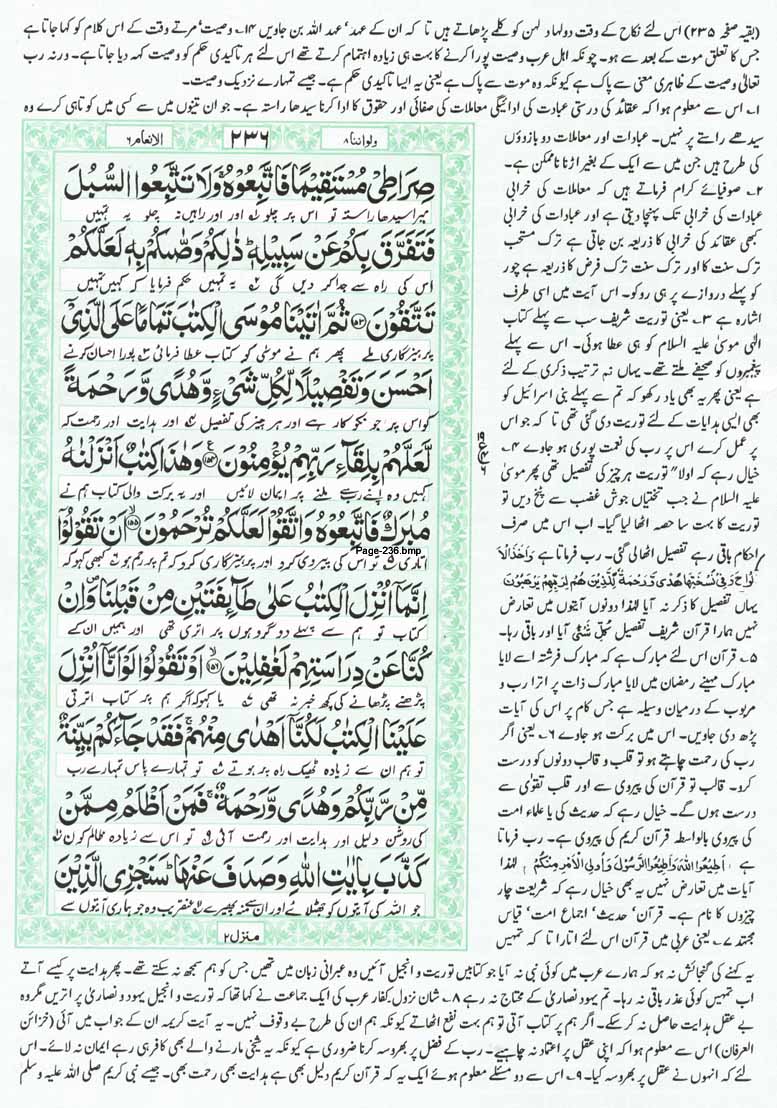 (بقیہ صفحہ ۲۳۵) اس لئے نکاح کے وقت دولہا دلہن کو کلمے پڑھاتے ہیں تا کہ ان کے عہد' عہد اللہ بن جاویں ۱۴۔ وصیت' مرتے وقت کے اس کلام کو کہا جاتا ہے
جس کا تعلق موت کے بعد سے ہو۔ چونکہ اہل عرب وصیت پورا کرنے کا بہت ہی زیادہ اہتمام کرتے تھے اس لئے ہر تاکیدی حکم کو وصیت کہہ دیا جاتا ہے۔ ورنہ رب
تعالٰی وصیت کے ظاہری معنی سے پاک ہے کیونکہ وہ موت سے پاک ہے یعنی یہ ایسا تاکیدی حکم ہے۔ جیسے تمہارے نزدیک وصیت۔
۱۔ اس سے معلوم ہوا کہ عقائد کی درستی عبادت کی ادائیگی معاملات کی صفائی اور حقوق کا ادا کرنا سیدھا راستہ ہے۔ جو ان تینوں میں سے کسی میں کوتاہی کرے وہ
سیدھے راستے پر نہیں۔ عبادات اور معاملات دو بازوؤں
کی طرح ہیں جن میں سے ایک کے بغیر اڑنا ناممکن ہے۔
۲۔ صوفیائے کرام فرماتے ہیں کہ معاملات کی خرابی
عبادات کی خرابی تک پہنچا دیتی ہے اور عبادات کی خرابی
کبھی عقائد کی خرابی کا ذریعہ بن جاتی ہے ترک مستحب
ترک سنت کا اور ترک سنت ترک فرض کا ذریعہ ہے چور
کو پہلے دروازے پر ہی روکو۔ اس آیت میں اسی طرف
اشارہ ہے ۳۔ یعنی توریت شریف سب سے پہلے کتاب
الٰہی موسیٰ علیہ السلام کو ہی عطا ہوئی۔ اس سے پہلے
پیغمبروں کو صحیفے ملتے تھے۔ یہاں ثم ترتیب ذکری کے لئے
ہے یعنی پھر یہ بھی یاد رکھو کہ تم سے پہلے بنی اسرائیل کو
بھی ایسی ہدایات کے لئے توریت دی گئی تھی تا کہ جو اس
پر عمل کرے اس پر رب کی نعمت پوری ہو جاوے ۴۔
خیال رہے کہ اولا" توریت ہر چیز کی تفصیل تھی پھر موسیٰ
علیہ السلام نے جب تختیاں جوش غضب سے پٹخ دیں تو
توریت کا بہت سا حصہ اٹھا لیا گیا۔ اب اس میں صرف
احکام باقی رہے تفصیل اٹھالی گئی۔ رب فرماتا ہے وَاَخَذَ الْاَ
لْوَاحَ وَفِیْ نُسْخَتِهَا هُدًی وَّرَحْمَةٌ لِّلَّذِیْنَ هُمْ لِرَبِّهِمْ یَرْهَبُوْنَ
یہاں تفصیل کا ذکر نہ آیا لہٰذا دونوں آیتوں میں تعارض
نہیں ہمارا قرآن شریف تفصیل کُلِّ شَیْءٍ آیا اور باقی رہا۔
۵۔ قرآن اس لئے مبارک ہے کہ مبارک فرشتہ اسے لایا
مبارک مہینے رمضان میں لایا مبارک ذات پر اترا رب و
مربوب کے درمیان وسیلہ ہے جس کام پر اس کی آیات
پڑھ دی جاویں۔ اس میں برکت ہو جاوے ۶۔ یعنی اگر
رب کی رحمت چاہتے ہو تو قلب و قالب دونوں کو درست
کرو۔ قالب تو قرآن کی پیروی سے اور قلب تقویٰ سے
درست ہوں گے۔ خیال رہے کہ حدیث کی یا علماء امت
کی پیروی بالواسطہ قرآن کریم کی پیروی ہے۔ رب فرماتا
ہے اَطِیْعُوا اللّٰهَ وَاَطِیْعُوا الرَّسُوْلَ وَاُولِی الْاَمْرِ مِنْكُمْ لہٰذا
آیات میں تعارض نہیں یہ بھی خیال رہے کہ شریعت چار
چیزوں کا نام ہے۔ قرآن' حدیث' اجماع امت' قیاس
مجتہد ۷۔ یعنی عربی میں قرآن اس لئے اتارا تا کہ تمہیں
ولواننا۸
۲۳۶
الانعام۶
صِرَاطِیْ مُسْتَقِیْمًا فَاتَّبِعُوْهُ ۚ وَلَا تَتَّبِعُوا السُّبُلَ
میرا سیدھا راستہ تو اس پر چلو اور اور راہیں نہ چلو یہ تمہیں
فَتَفَرَّقَ بِكُمْ عَنْ سَبِیْلِهٖ ؕ ذٰلِكُمْ وَصّٰىكُمْ بِهٖ لَعَلَّكُمْ
اس کی راہ سے جدا کر دیں گی یہ تمہیں حکم فرمایا کہ کہیں تمہیں
تَتَّقُوْنَ ﴿۱۵۳﴾ ثُمَّ اٰتَیْنَا مُوْسَی الْكِتٰبَ تَمَامًا عَلَی الَّذِیْۤ
پرہیزگاری ملے پھر ہم نے موسٰی کو کتاب عطا فرمائی پورا احسان کرنے
اَحْسَنَ وَتَفْصِیْلًا لِّكُلِّ شَیْءٍ وَّهُدًی وَّرَحْمَةً
کو اس پر جو نکوکار ہے اور ہر چیز کی تفصیل اور ہدایت اور رحمت کہ
لَّعَلَّهُمْ بِلِقَآءِ رَبِّهِمْ یُؤْمِنُوْنَ ﴿۱۵۴﴾ وَهٰذَا كِتٰبٌ اَنْزَلْنٰهُ
کہیں وہ اپنے رب سے ملنے پر ایمان لائیں اور یہ برکت والی کتاب ہم نے
مُبٰرَكٌ فَاتَّبِعُوْهُ وَاتَّقُوْا لَعَلَّكُمْ تُرْحَمُوْنَ ﴿۱۵۵﴾ اَنْ تَقُوْلُوْۤا
Page-236.bmp
اتاری تو اس کی پیروی کرو اور پرہیزگاری کرو کہ تم پر رحم ہو کبھی کہو کہ
اِنَّمَاۤ اُنْزِلَ الْكِتٰبُ عَلٰی طَآئِفَتَیْنِ مِنْ قَبْلِنَا ۪ وَاِنْ
کتاب تو ہم سے پہلے دو گروہوں پر اتری تھی اور ہمیں ان کے
كُنَّا عَنْ دِرَاسَتِهِمْ لَغٰفِلِیْنَ ﴿۱۵۶﴾ اَوْ تَقُوْلُوْا لَوْ اَنَّاۤ اُنْزِلَ
پڑھنے پڑھانے کی کچھ خبر نہ تھی یا کہو کہ اگر ہم پر کتاب اترتی
عَلَیْنَا الْكِتٰبُ لَكُنَّاۤ اَهْدٰی مِنْهُمْ ۚ فَقَدْ جَآءَكُمْ بَیِّنَةٌ
تو ہم ان سے زیادہ ٹھیک راہ پر ہوتے تو تمہارے پاس تمہارے رب
مِّنْ رَّبِّكُمْ وَهُدًی وَّرَحْمَةٌ ۚ فَمَنْ اَظْلَمُ مِمَّنْ
کی روشن دلیل اور ہدایت اور رحمت آئی تو اس سے زیادہ ظالم کون
كَذَّبَ بِاٰیٰتِ اللّٰهِ وَصَدَفَ عَنْهَا ؕ سَنَجْزِی الَّذِیْنَ
جو اللہ کی آیتوں کو جھٹلائے اور ان سے منہ پھیرے عنقریب وہ جو ہماری آیتوں سے
منزل۲
یہ کہنے کی گنجائش نہ ہو کہ ہمارے عرب میں کوئی نبی نہ آیا جو کتابیں توریت و انجیل آئیں وہ عبرانی زبان میں تھیں جس کو ہم سمجھ نہ سکتے تھے۔ پھر ہدایت پر کیسے آتے
اب تمہیں کوئی عذر باقی نہ رہا۔ تم یہود نصاریٰ کے محتاج نہ رہے ۸۔ شان نزول کفار عرب کی ایک جماعت نے کہا تھا کہ توریت و انجیل یہود و نصاریٰ پر اتریں مگر وہ
بے عقل ہدایت حاصل نہ کر سکے۔ اگر ہم پر کتاب آتی تو ہم بہت نفع اٹھاتے کیونکہ ہم ان کی طرح بے وقوف نہیں۔ یہ آیت کریمہ ان کے جواب میں آئی (خزائن
العرفان) اس سے معلوم ہوا کہ اپنی عقل پر اعتماد نہ چاہیے۔ رب کے فضل پر بھروسہ کرنا ضروری ہے کیونکہ یہ شیخی مارنے والے بھی کافر ہی رہے ایمان نہ لائے۔ اس
لئے کہ انہوں نے عقل پر بھروسہ کیا۔ ۹۔ اس سے دو مسئلے معلوم ہوئے ایک یہ کہ قرآن کریم دلیل بھی ہے ہدایت بھی رحمت بھی۔ جیسے نبی کریم صلی اللہ علیہ وسلم